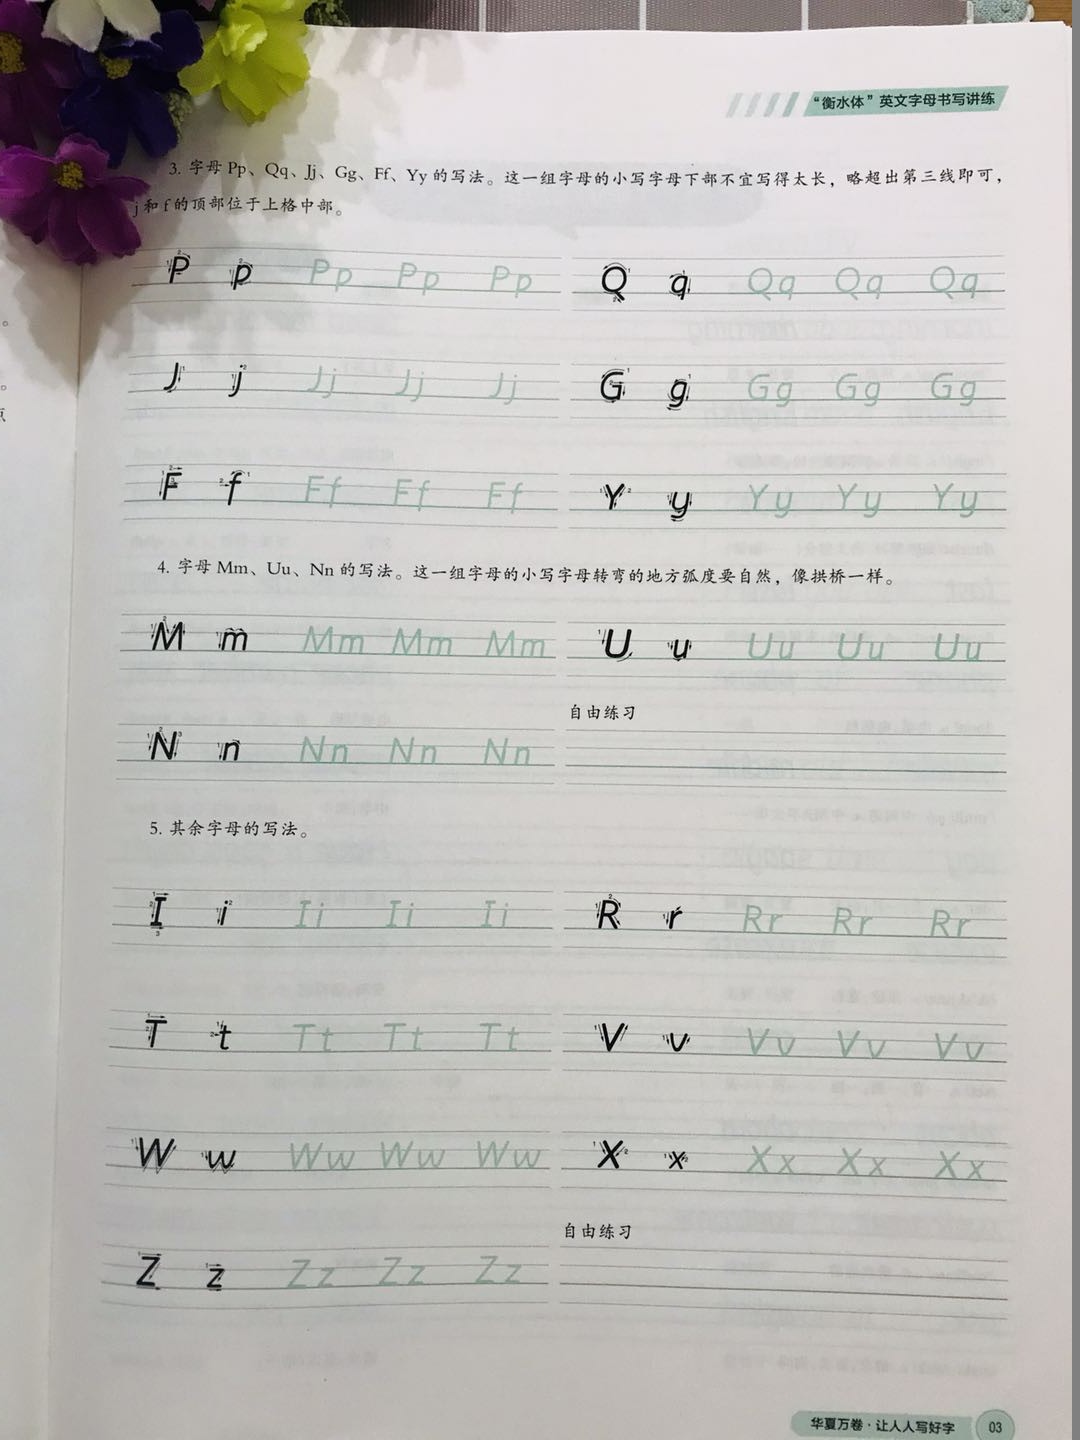 “衡水体”英文字母书写讲练
3. 字母 Pp、Qq、Jj、Gg、Ff、Yy 的写法。这一组字母的小写字母下部不宜写得太长，略超出第三线即可，
j 和 f 的顶部位于上格中部。
P p Pp Pp Pp Q q Qq Qq Qq
J j Jj Jj Jj G g Gg Gg Gg
F f Ff Ff Ff Y y Yy Yy Yy
4. 字母 Mm、Uu、Nn 的写法。这一组字母的小写字母转弯的地方弧度要自然，像拱桥一样。
M m Mm Mm Mm U u Uu Uu Uu
自由练习
N n Nn Nn Nn
5. 其余字母的写法。
I i Ii Ii Ii R r Rr Rr Rr
T t Tt Tt Tt V v Vv Vv Vv
W w Ww Ww Ww X x Xx Xx Xx
自由练习
Z z Zz Zz Zz
华夏万卷·让人人写好字 03